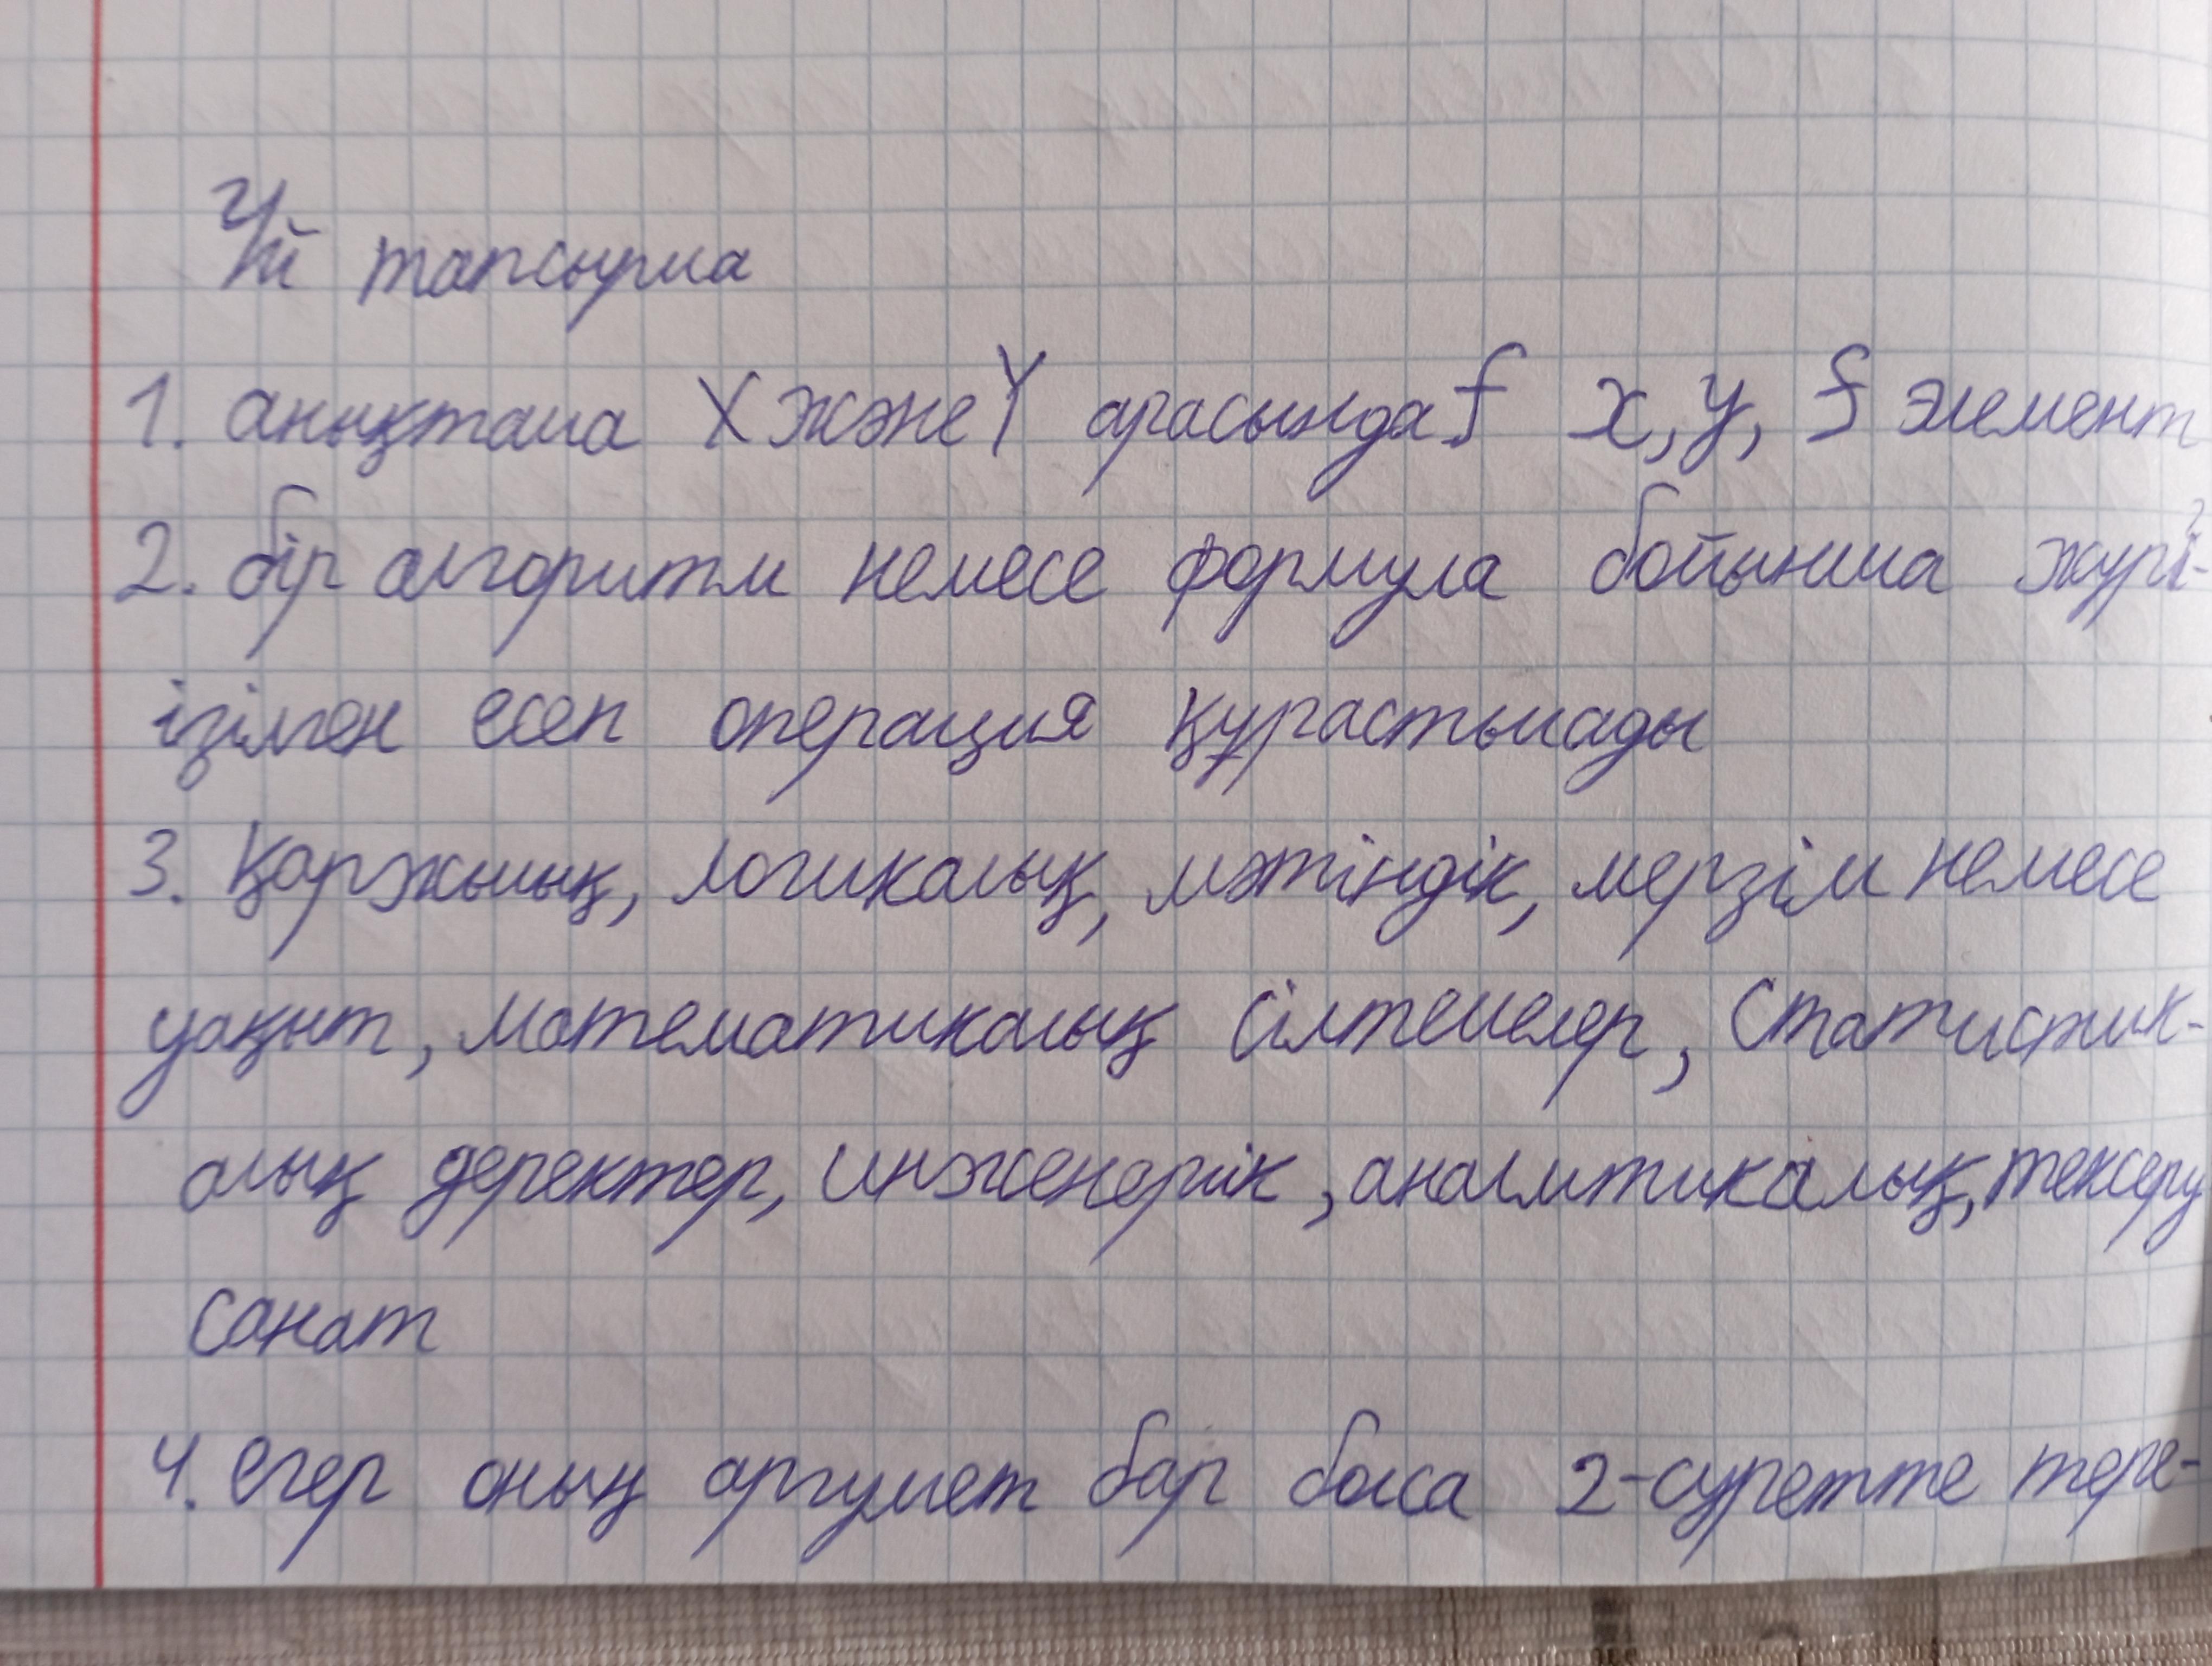 Үй тапсырма
1. анықтама X және Y арасында f x, y, f элемент
2. бір алгоритм немесе формула бойынша жүрі-
ізілген есеп операция құрастылады
3. Қаржылық, логикалық, мәтіндік, мерзім немесе
уақыт, математикалық сілтемелер, статистик-
алық деректер, инженерлік, аналитикалық, тексеру
санат
4. егер оның аргумет бар болса 2-суретте тере-